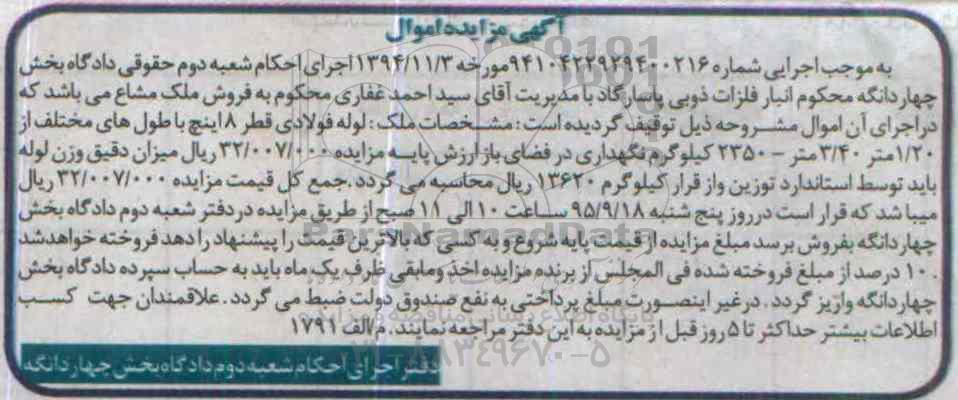 آگهی مزایده اموال
به موجب اجرایی شماره ۹۴۱۰۴۲۲۹۲۹۴۰۰۲۱۶ مورخه ۱۳۹۴/۱۱/۳ اجرای احکام شعبه دوم حقوقی دادگاه بخش
چهاردانگه محکوم انبار فلزات ذوبی پاسارگاد با مدیریت آقای سید احمد غفاری محکوم به فروش ملک مشاع می باشد که
دراجرای آن اموال مشروحه ذیل توقیف گردیده است: مشخصات ملک: لوله فولادی قطر ۸ اینچ با طول های مختلف از
۱/۲۰ متر ۳/۴۰ متر - ۲۳۵۰ کیلوگرم نگهداری در فضای باز ارزش پایه مزایده ۳۲/۰۰۷/۰۰۰ ریال میزان دقیق وزن لوله
باید توسط استاندارد توزین واز قرار کیلوگرم ۱۳۶۲۰ ریال محاسبه می گردد. جمع کل قیمت مزایده ۳۲/۰۰۷/۰۰۰ ریال
میبا شد که قرار است درروز پنج شنبه ۹۵/۹/۱۸ ساعت ۱۰ الی ۱۱ صبح از طریق مزایده در دفتر شعبه دوم دادگاه بخش
چهاردانگه بفروش برسد مبلغ مزایده از قیمت پایه شروع و به کسی که بالاترین قیمت را پیشنهاد را دهد فروخته خواهدشد
. ۱۰ درصد از مبلغ فروخته شده فی المجلس از برنده مزایده اخذ ومابقی ظرف یک ماه باید به حساب سپرده دادگاه بخش
چهاردانگه واریز گردد. درغیر اینصورت مبلغ پرداختی به نفع صندوق دولت ضبط می گردد. علاقمندان جهت کسب
اطلاعات بیشتر حداکثر تا ۵ روز قبل از مزایده به این دفتر مراجعه نمایند. م/الف ۱۷۹۱
دفتر اجرای احکام شعبه دوم دادگاه بخش چهاردانگه
ParsNamadData
۰۲۱-۸۸۳۴۹۶۷۰-۵